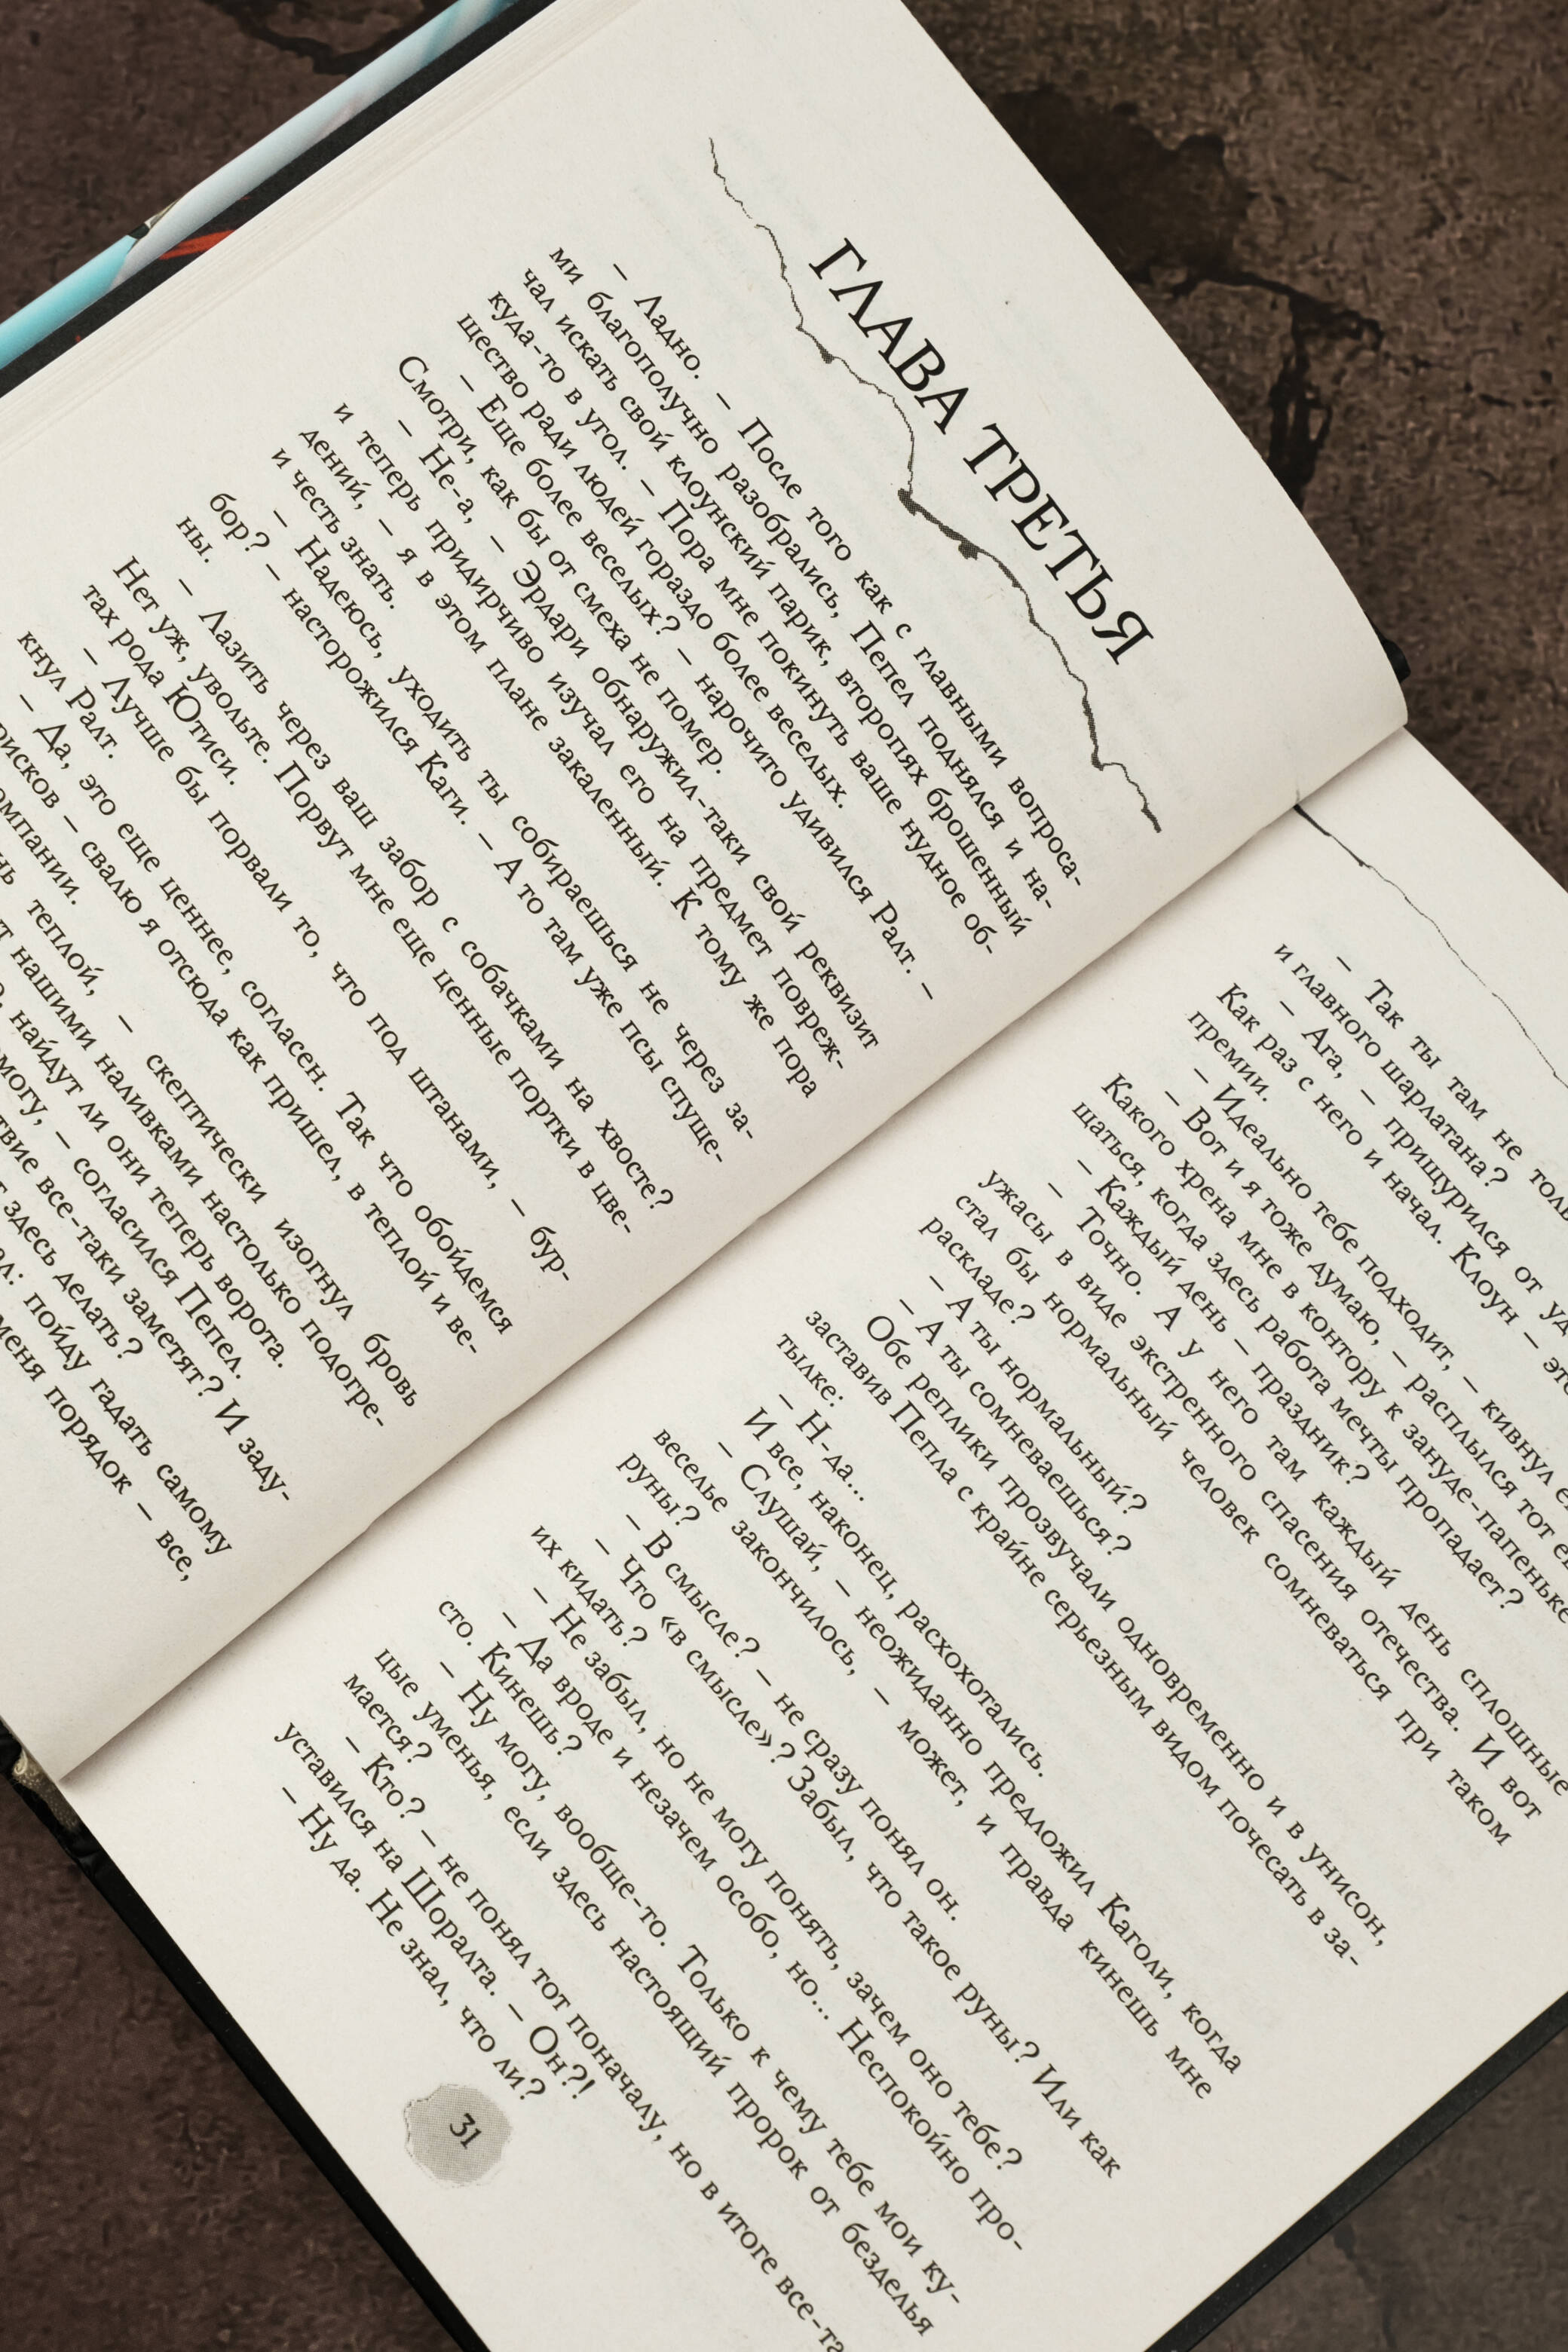 ГЛАВА ТРЕТЬЯ
– Ладно. – После того как с главными вопроса-
ми благополучно разобрались, Пепел поднялся и на-
чал искать свой клоунский парик, второпях брошенный
куда-то в угол. – Пора мне покинуть ваше нудное об-
щество ради людей гораздо более веселых.
– Еще более веселых? – нарочито удивился Ралт. –
Смотри, как бы от смеха не помер.
– Не-а, – Эрдари обнаружил-таки свой реквизит
и теперь придирчиво изучал его на предмет повреж-
дений, – я в этом плане закаленный. К тому же пора
и честь знать.
– Надеюсь, уходить ты собираешься не через за-
бор? – насторожился Каги. – А то там уже псы спуще-
ны.
– Лазить через ваш забор с собачками на хвосте?
Нет уж, увольте. Порвут мне еще ценные портки в цве-
тах рода Ютиси.
– Лучше бы порвали то, что под штанами, – бур-
кнул Ралт.
– Да, это еще ценнее, согласен. Так что обойдемся
– свалю я отсюда как пришел, в теплой и ве-
компании.
теплой, – скептически изогнул бровь
нашими наливками настолько подогре-
найдут ли они теперь ворота.
– согласился Пепел.
все-таки заметят? И заду-
здесь делать?
пойду гадать самому
меня порядок – все,
– Так ты там не
и главного шарлатана?
– Ага, – прищурился от
Как раз с него и начал. Клоун –
премии.
– Идеально тебе подходит, – кивнул
– Вот и я тоже думаю, – расплылся тот
Какого хрена мне в контору к зануде-папеньке
щаться, когда здесь работа мечты пропадает?
– Каждый день – праздник?
– Точно. А у него там каждый день сплошные
ужасы в виде экстренного спасения отечества. И вот
стал бы нормальный человек сомневаться при таком
раскладе?
– А ты нормальный?
– А ты сомневаешься?
Обе реплики прозвучали одновременно и в унисон,
заставив Пепла с крайне серьезным видом почесать в за-
тылке:
– Н-да…
И все, наконец, расхохотались.
– Слушай, – неожиданно предложил Каголи, когда
веселье закончилось, – может, и правда кинешь мне
руны?
– В смысле? – не сразу понял он.
– Что «в смысле»? Забыл, что такое руны? Или как
их кидать?
– Не забыл, но не могу понять, зачем оно тебе?
– Да вроде и незачем особо, но… Неспокойно про-
сто. Кинешь?
– Ну могу, вообще-то. Только к чему тебе мои ку-
цые уменья, если здесь настоящий пророк от безделья
мается?
– Кто? – не понял тот поначалу, но в итоге
уставился на Шоралта. – Он?!
– Ну да. Не знал, что ли?
31